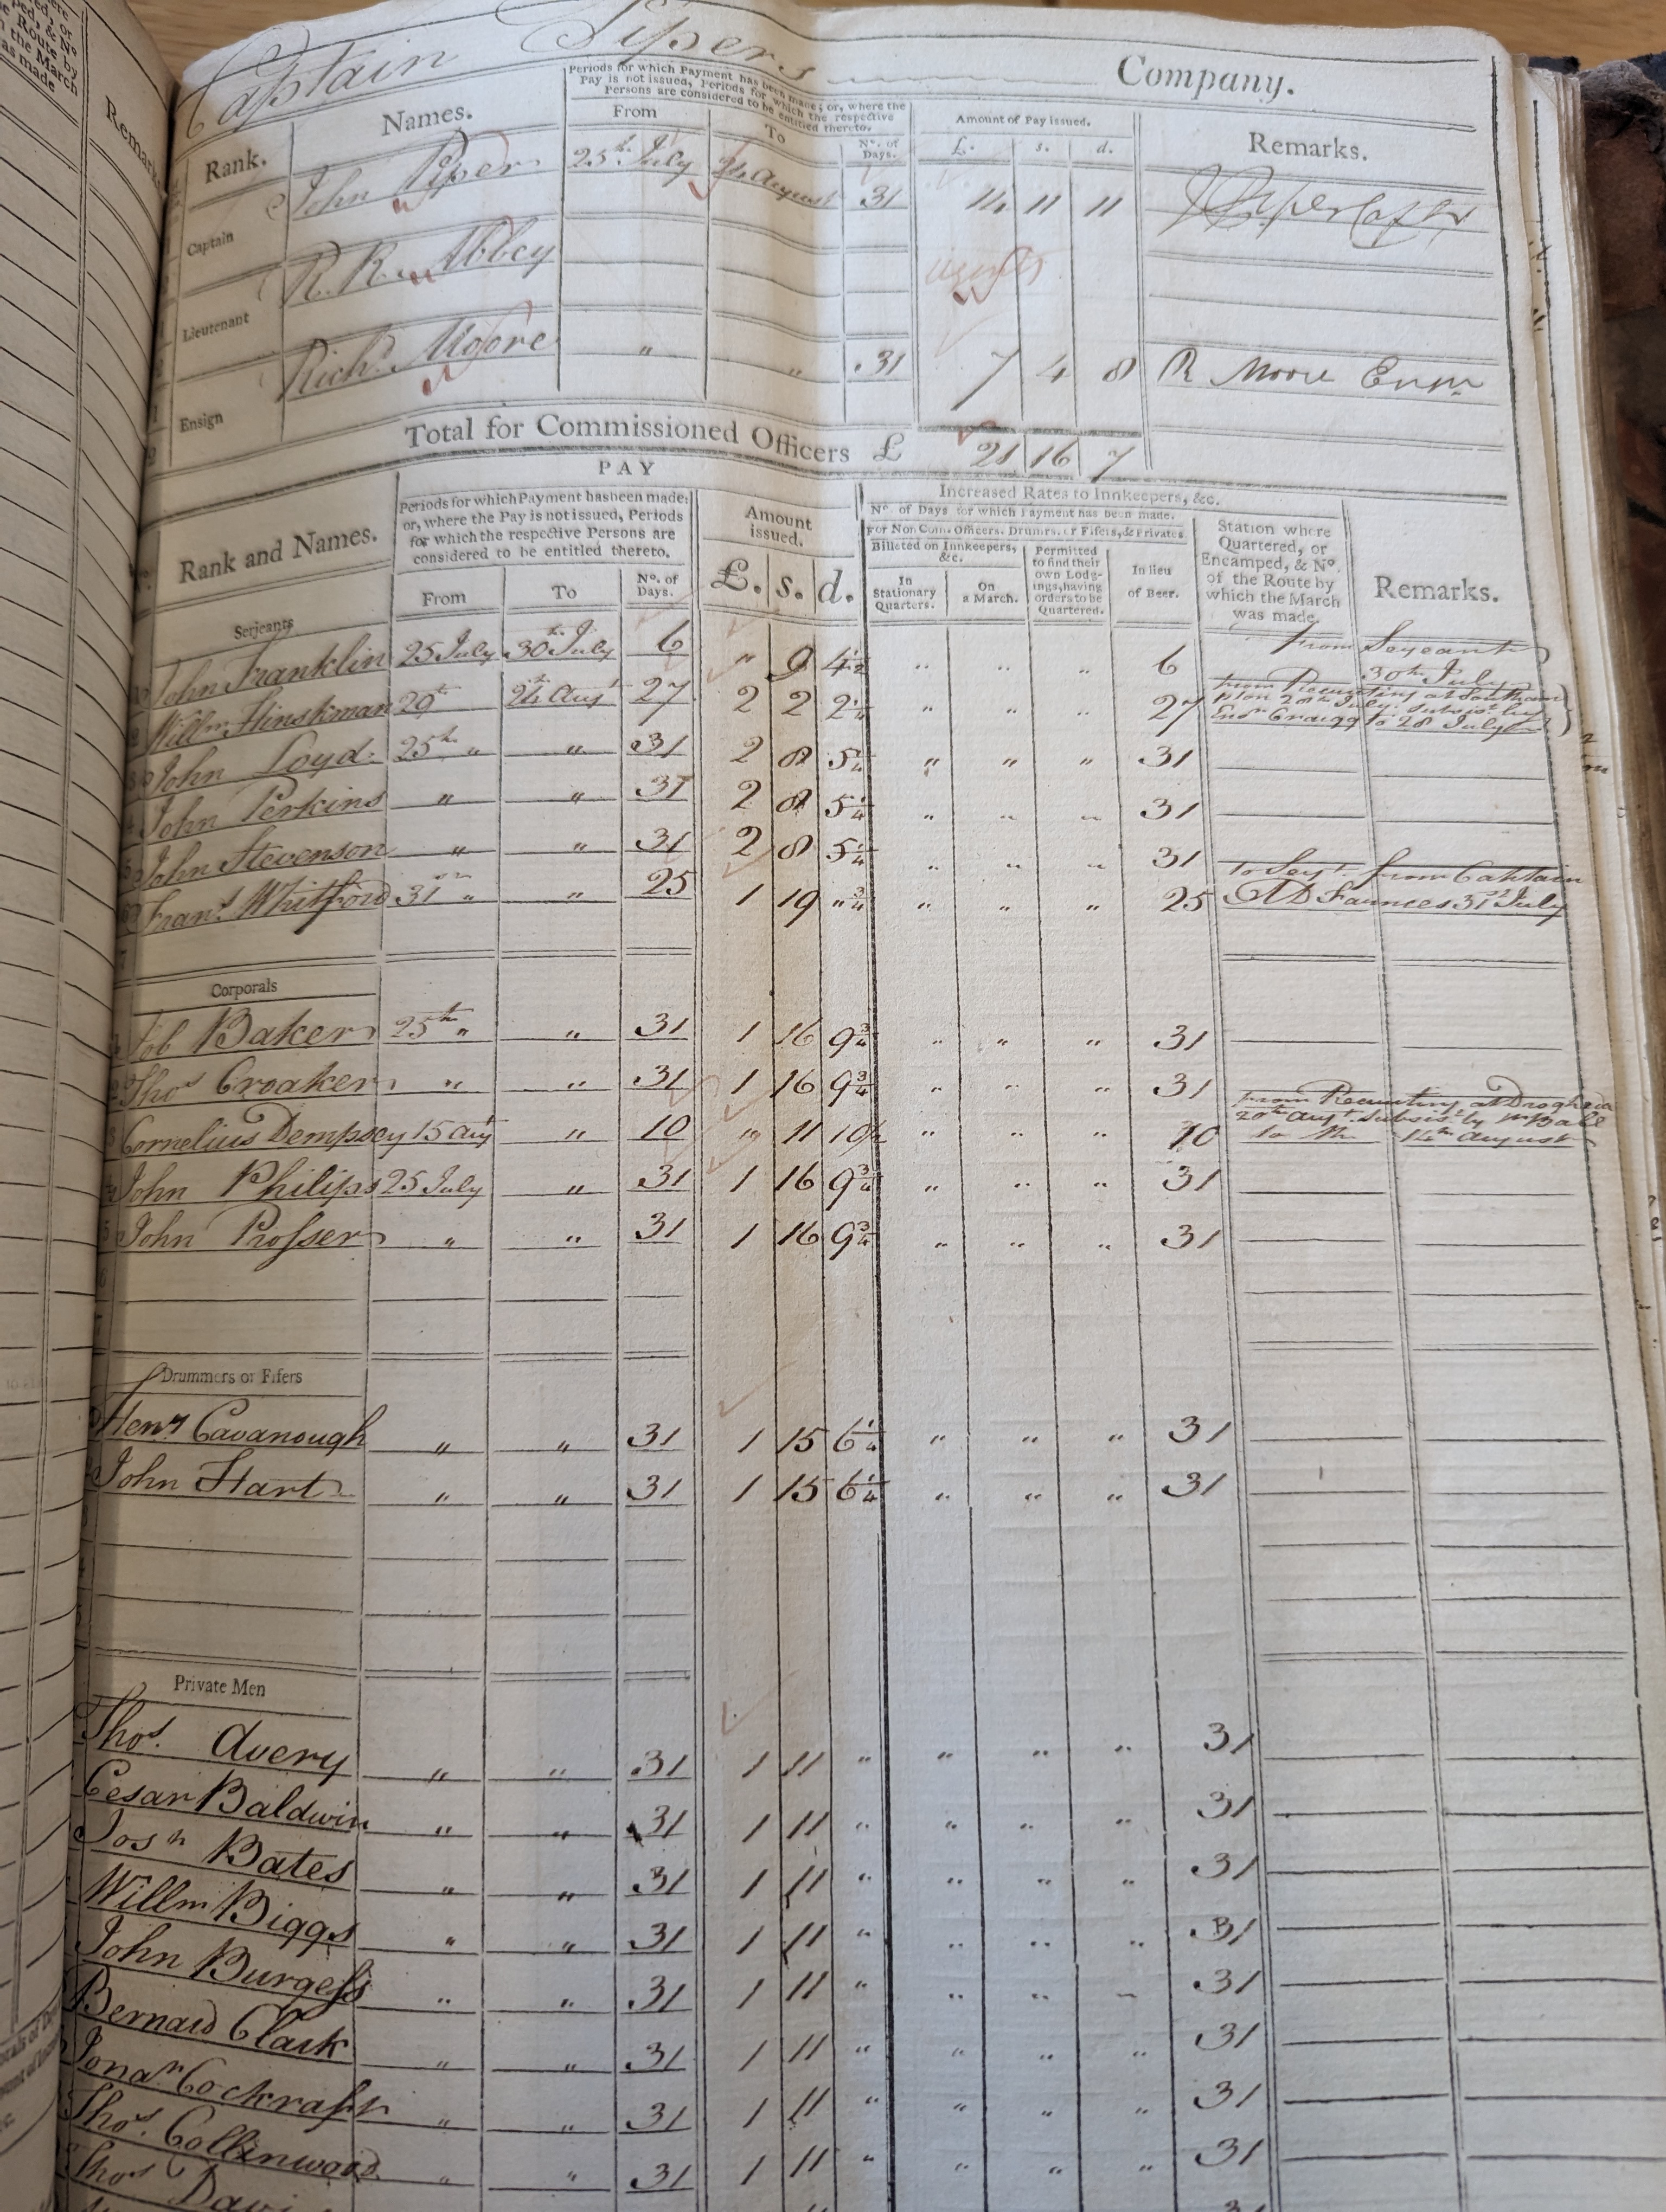 Captain Pipers Company.
Rank. Names. Periods for which Payment has been made; or, where the Pay is not issued, Periods for which the respective Persons are considered to be entitled thereto. Amount of Pay issued. Remarks.
From To No. of Days. £. s. d.
Captain John Piper 25th July 24 August 31 14 11 11 J Piper Captn
Lieutenant R. R. Abbey agents
Ensign Richd. Moore " " 31 7 4 8 R Moore Ensn
Total for Commissioned Officers £ 21 16 7
PAY
Rank and Names. Periods for which Payment has been made; or, where the Pay is not issued, Periods for which the respective Persons are considered to be entitled thereto. Amount issued. Increased Rates to Innkeepers, &c.
No. of Days for which Payment has been made.
For Non Com. Officers. Drumrs. or Fifers, & Privates
Billeted on Innkeepers, &c. Permitted to find their own Lodgings, having orders to be Quartered. In lieu of Beer. Station where Quartered, or Encamped, & No. of the Route by which the March was made. Remarks.
From To No. of Days. £. s. d. In Stationary Quarters. On a March.
Serjeants
John Franklin 25 July 30th July 6 " 9 4½ " " " 6 from Sergeant 30th July
Willm Hinskman 29th 24 Augt 27 2 2 2¼ " " " 27 from Recruiting at Southam pton 28th July. subsist by Ensn Craigg to 28 July
John Loyd 25th " " 31 2 8 5¼ " " " 31
John Perkins " " 31 2 8 5¼ " " " 31
John Stevenson " " 31 2 8 5¼ " " " 31
Frans Whitford 31st " " 25 1 19 " ¾ " " " 25 to Sergt. from Captain A D Faunces 31st July
Corporals
Job Baker 25th " " 31 1 16 9¾ " " " 31
Thos Croaker " " 31 1 16 9¾ " " " 31
Cornelius Dempsey 15 Aug " 10 " 11 10½ " " " 10 from Recruiting at Drogheda 20th Augt. subsist by Mr Ball to the 14th August
John Philips 25 July " 31 1 16 9¾ " " " 31
John Prosser " " 31 1 16 9¾ " " " 31
Drummers or Fifers
Heny Cavanough " " 31 1 15 6¼ " " " 31
John Hart " " 31 1 15 6¼ " " " 31
Private Men
Thos. Avery " " 31 1 11 " " " " 31
Cesar Baldwin " " 31 1 11 " " " " 31
Josh Bates " " 31 1 11 " " " " 31
Willm Biggs " " 31 1 11 " " " " 31
John Burgess " " 31 1 11 " " " " 31
Bernard Clark " " 31 1 11 " " " " 31
Jonan Cockraft " " 31 1 11 " " " " 31
Thos. Collinwood " " 31 1 11 " " " " 31
Thos